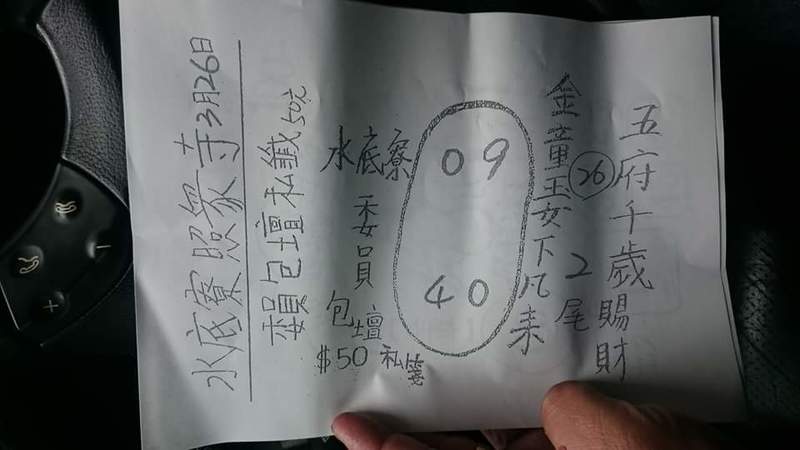 五府千歲賜財
金童玉女下凡來
26
2尾
09
40
水底寮
委員
包壇
$50 私簽
水底寮照衆寺3月26日
委員包壇私籤50元